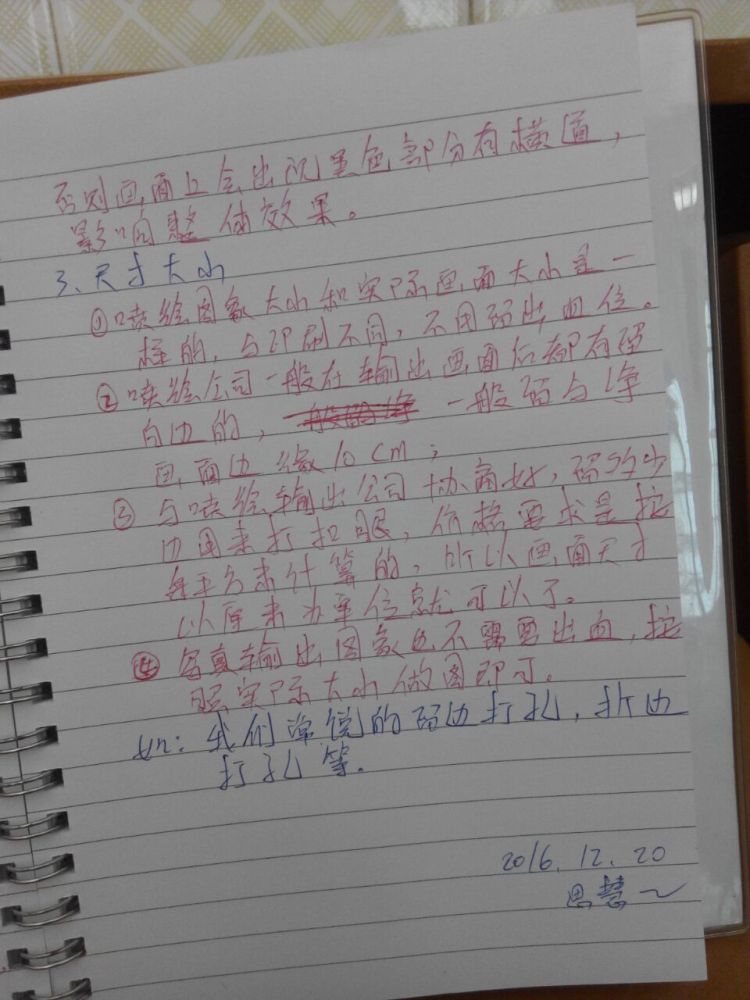 否则画面上会出现黑色部分有横道，
影响整体效果。
3、尺寸大小
①喷绘图象大小和实际画面大小是一
样的，与印刷不同，不用留出血位。
②喷绘公司一般在输出画面后都有留
白边的，一般留与净
画面边缘10cm；
③与喷绘输出公司协商好，留多少
边用来打扣眼，价格要求是按
每平方来计算的，所以画面尺寸
以厘米为单位就可以了。
④写真输出图象也不需要出血，按
照实际大小做图即可。
如：我们常说的留边打孔，折边
打孔等.
2016.12.20
思慧～